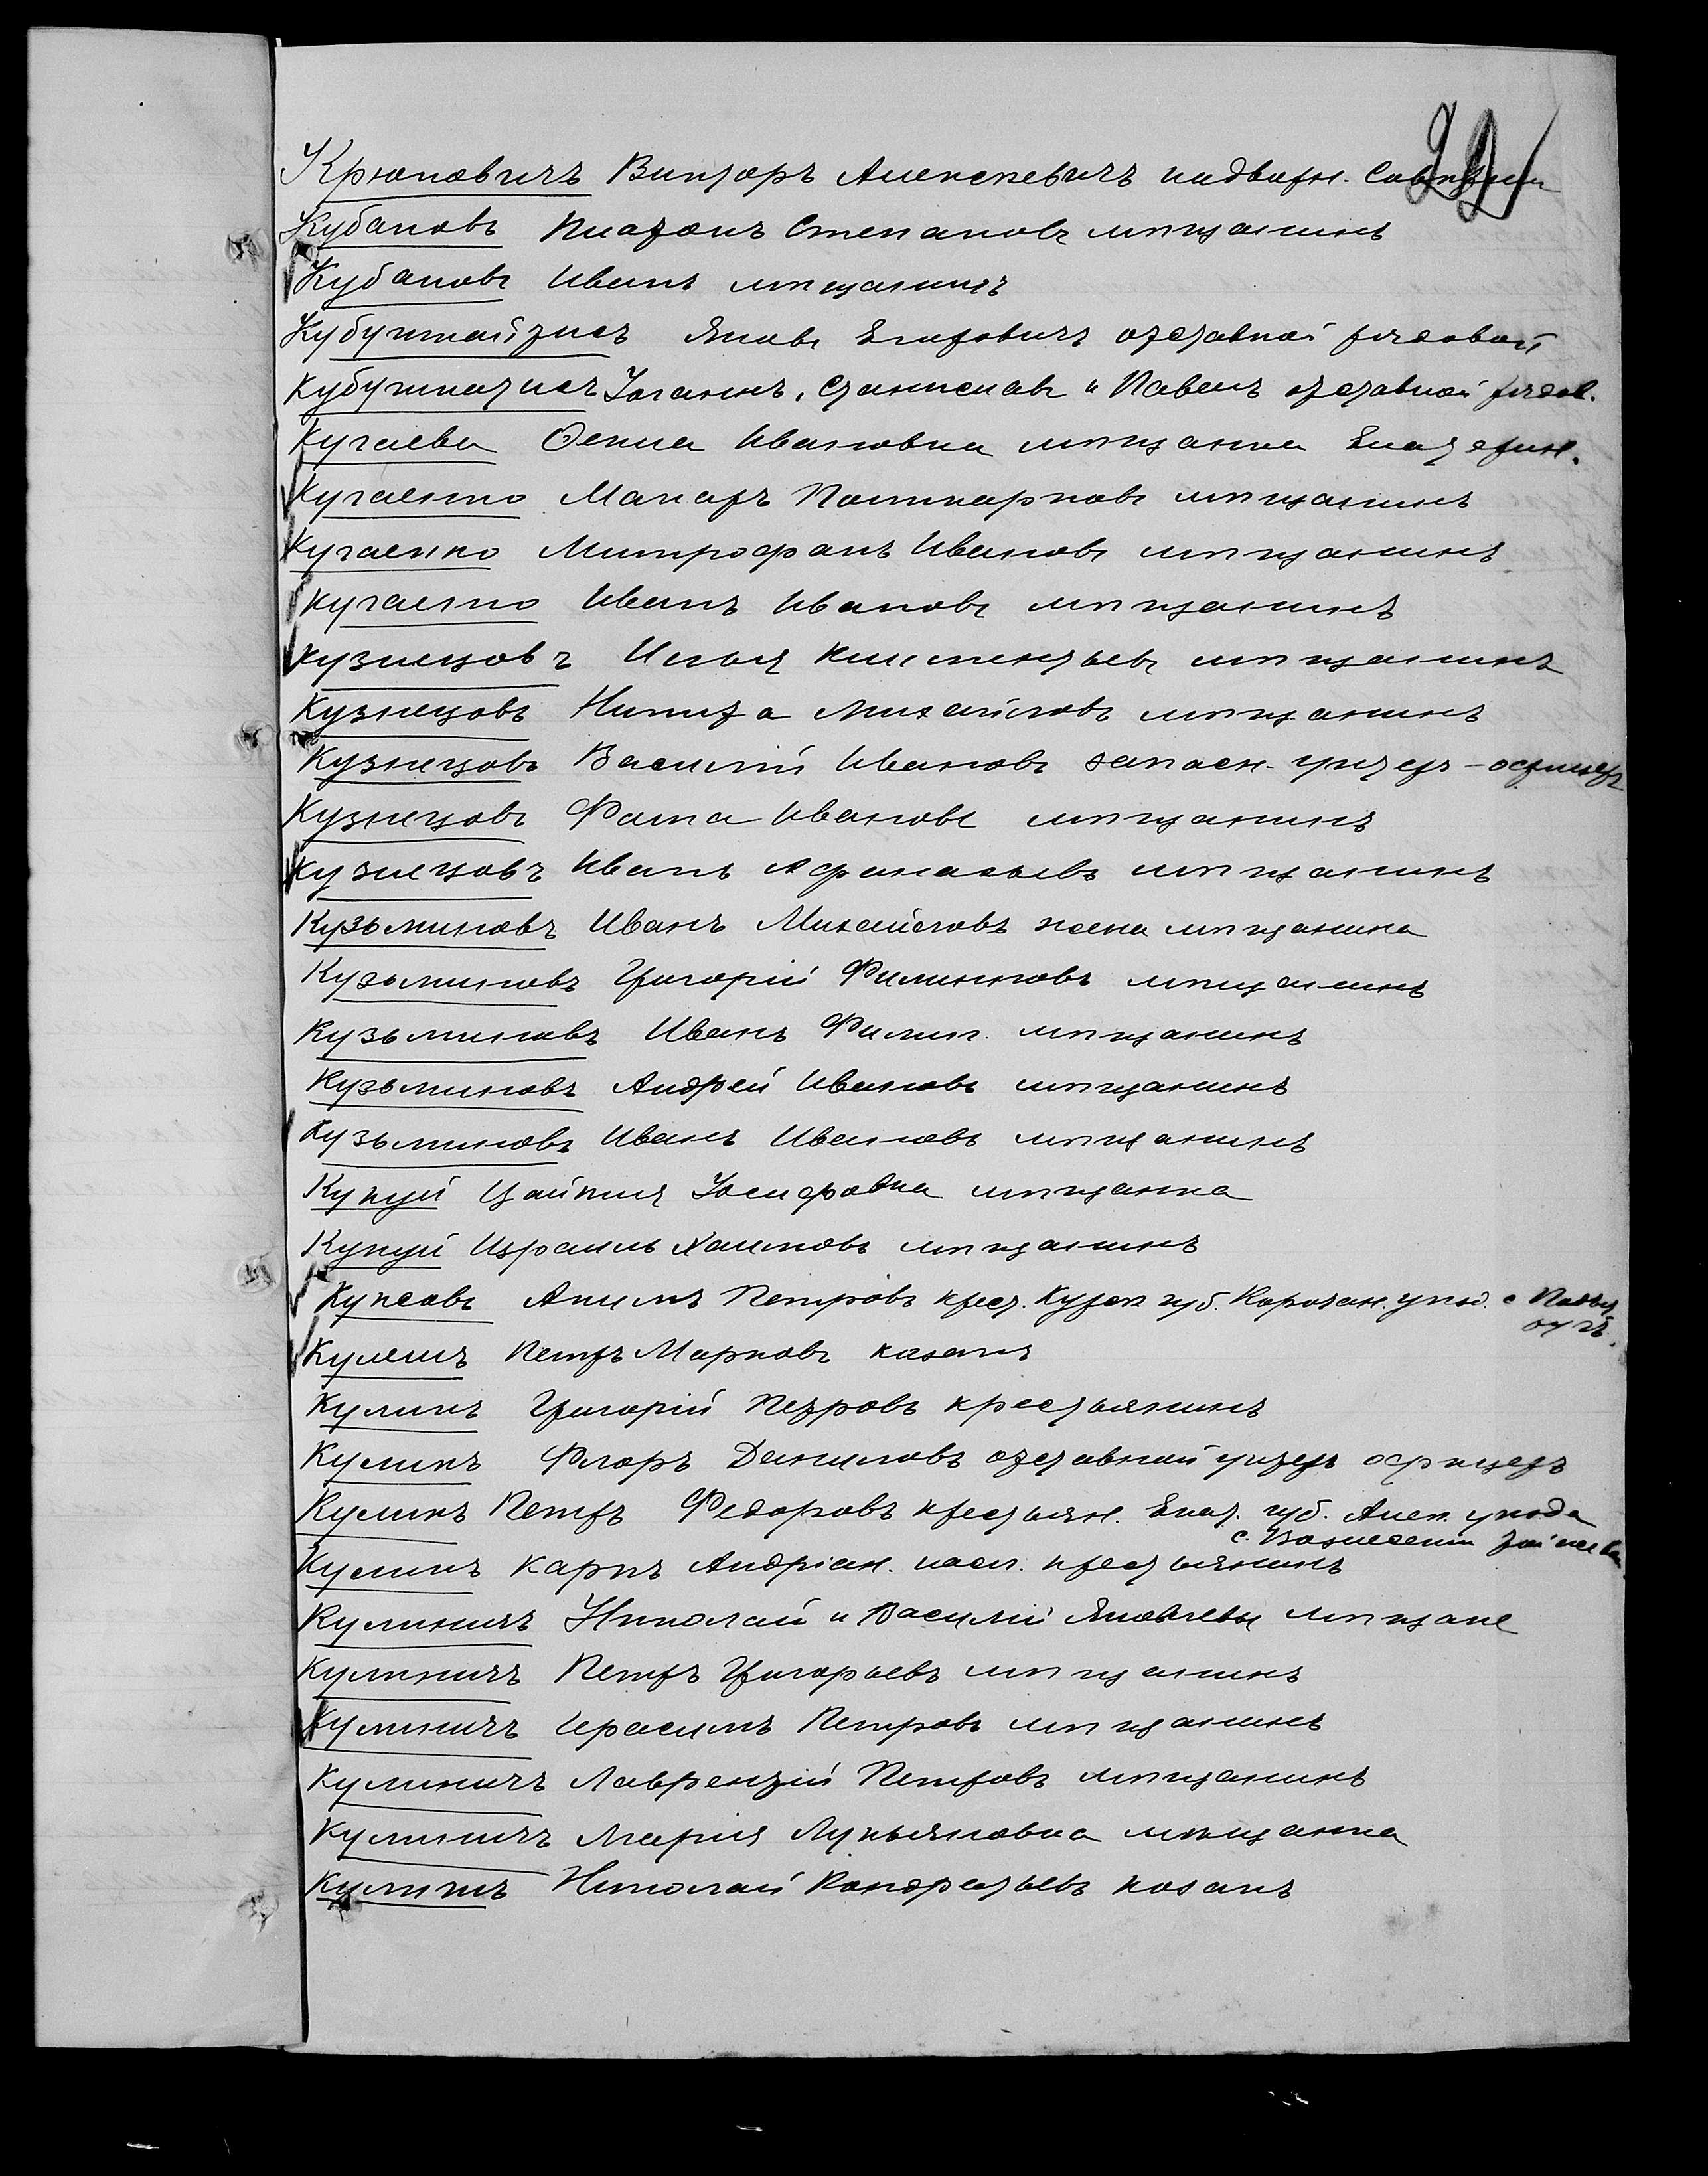 Крюковичъ Викторъ Алексеевичъ надворн. Совѣтник
Кубановъ Платонъ Степановъ мѣщанинъ
Кубановъ Иванъ мѣщанинъ
Яковъ отставной рядовой
Іоганнъ, Станиславъ и Павелъ отставной рядов.
Кугаева Ѳекла Ивановна мѣщанка Екатерин.
Кугаенко Макаръ Поликарповъ мѣщанинъ
Кугаенко Митрофанъ Ивановъ мѣщанинъ
Кугаенко Иванъ Ивановъ мѣщанинъ
Кузнецовъ Илья Климентьевъ мѣщанинъ
Кузнецовъ Никита Михайловъ мѣщанинъ
Кузнецовъ Василій Ивановъ запасн. унтеръ-офицеръ
Кузнецовъ Фома Ивановъ мѣщанинъ
Кузнецовъ Иванъ Афанасьевъ мѣщанинъ
Кузьминовъ Иванъ Михайловъ жена мѣщанина
Кузьминовъ Григорій Филипповъ мѣщанинъ
Кузьминовъ Иванъ Филип. мѣщанинъ
Кузьминовъ Андрей Ивановъ мѣщанинъ
Кузьминовъ Иванъ Ивановъ мѣщанинъ
Кукуй Іосифовна мѣщанка
Кукуй Израиль Хаимовъ мѣщанинъ
Акимъ Петровъ крест. Курск губ. Корочан. уѣзд. с
Кулешъ Петръ Марковъ казакъ
Куликъ Григорій Петровъ крестьянинъ
Куликъ Флоръ Даниловъ отставной унтеръ офицеръ
Куликъ Петръ Федоровъ крестьян. Екат. губ. Алек. уѣзда
с. Вознесенки
Куликъ Карпъ Андріан. насл. крестьянинъ
Куличичъ Николай и Василій Яковлевы мѣщане
Кулиничъ Петръ Григорьевъ мѣщанинъ
Кулиничъ Герасимъ Петровъ мѣщанинъ
Кулиничъ Лаврентій Петровъ мѣщанинъ
Кулиничъ Марія Лукьяновна мѣщанка
Кулишъ Николай Кондратьевъ козакъ